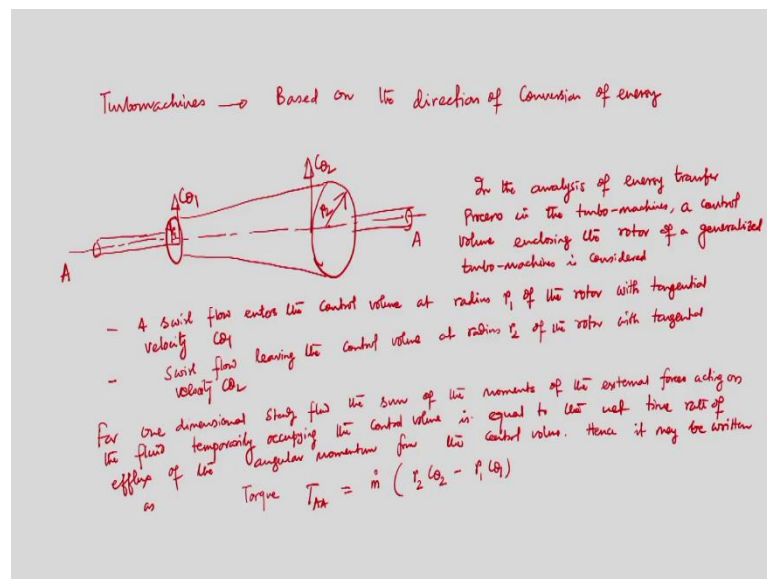 Turbomachines → Based on the direction of Conversion of energy
Cθ1
Cθ2
r1
r2
A
A
In the analysis of energy transfer
Process in the turbo-machines, a control
volume enclosing the rotor of a generalized
turbo-machines is considered
- A swirl flow enters the control volume at radius r1 of the rotor with tangential
velocity Cθ1
- Swirl flow leaving the control volume at radius r2 of the rotor with tangential
velocity Cθ2
For one dimensional steady flow the sum of the moments of the external forces acting on
the fluid temporarily occupying the control volume is equal to the net time rate of
efflux of the angular momentum from the control volume. Hence it may be written
as
Torque T_AA = ṁ ( r2 Cθ2 - r1 Cθ1 )